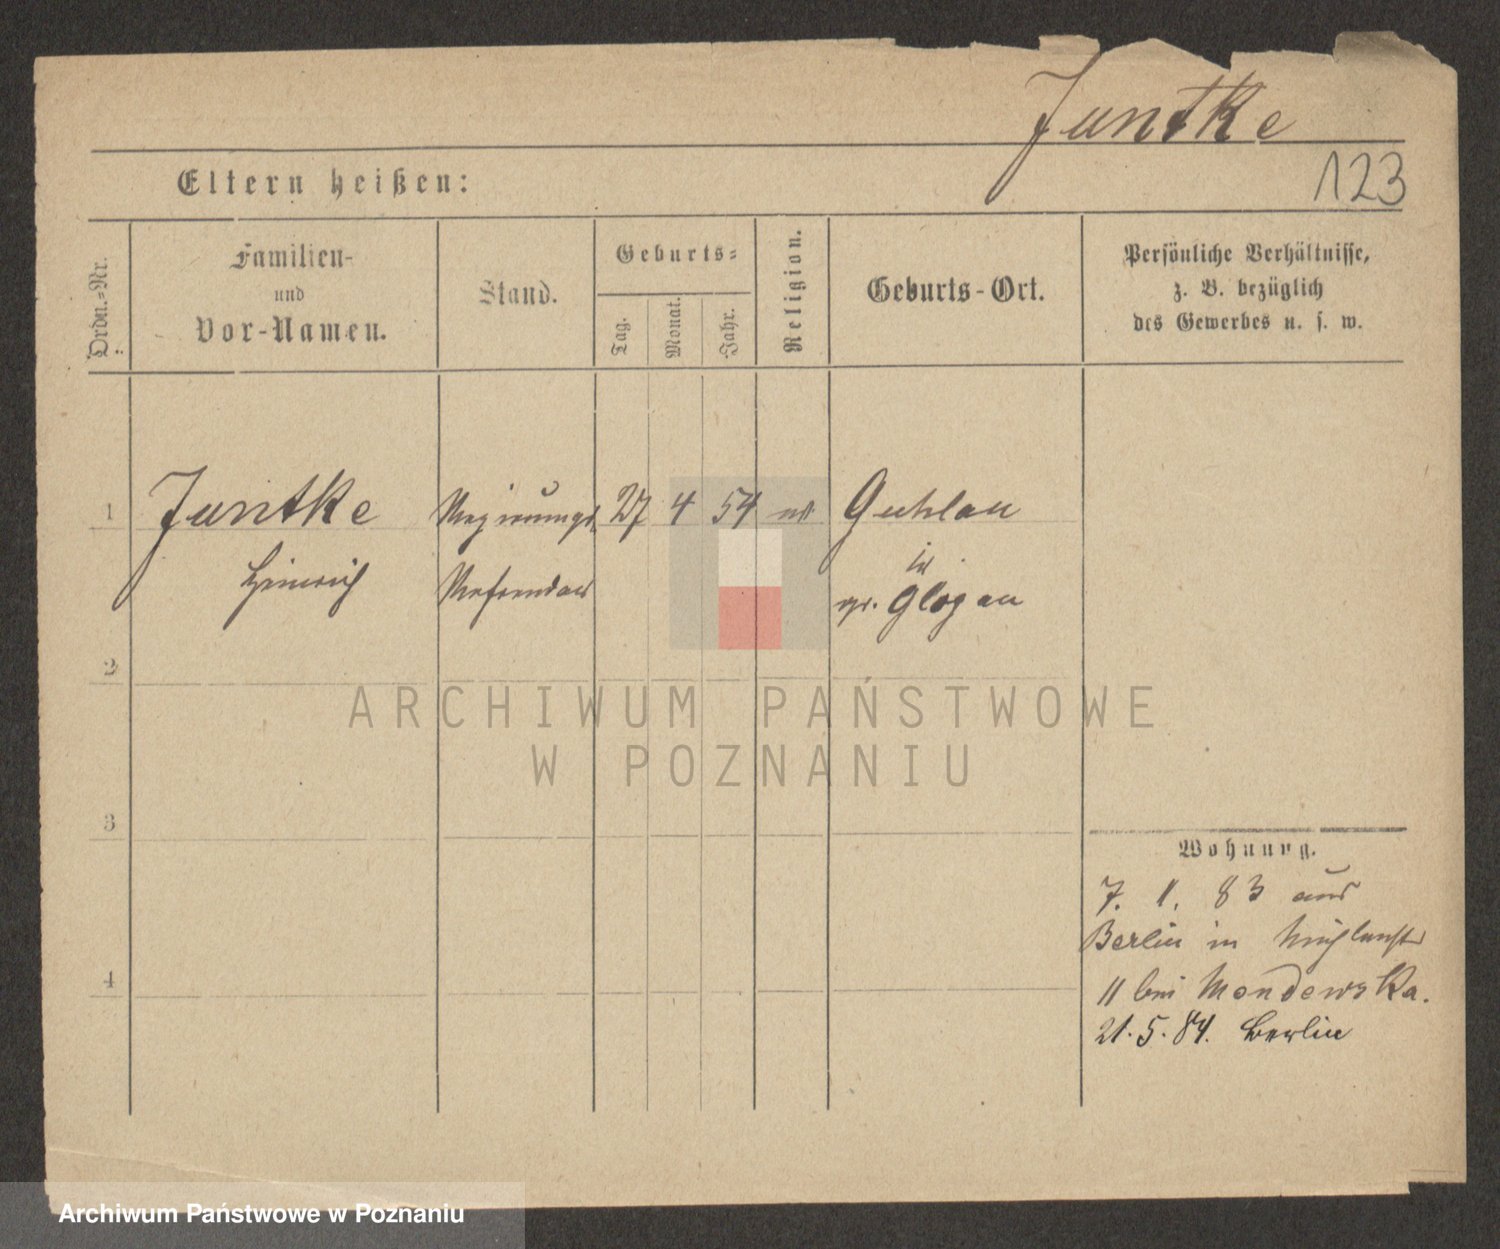 Juntke
Eltern heißen:
123
Ordn.-Nr.
Familien-
und
Vor-Namen.
Stand.
Geburts-
Tag.
Monat.
Jahr.
Religion.
Geburts-Ort.
Persönliche Verhältnisse,
z. B. bezüglich
des Gewerbes u. s. w.
1 Juntke Regierungs 27 4 54 Guhlau
Heinrich Referendar
gr. Glogau
2
3
4
Wohnung.
7. 1. 83 aus
Berlin in
11 bei Mondewska.
21. 5. 84. Berlin
ARCHIWUM PAŃSTWOWE
W POZNANIU
Archiwum Państwowe w Poznaniu